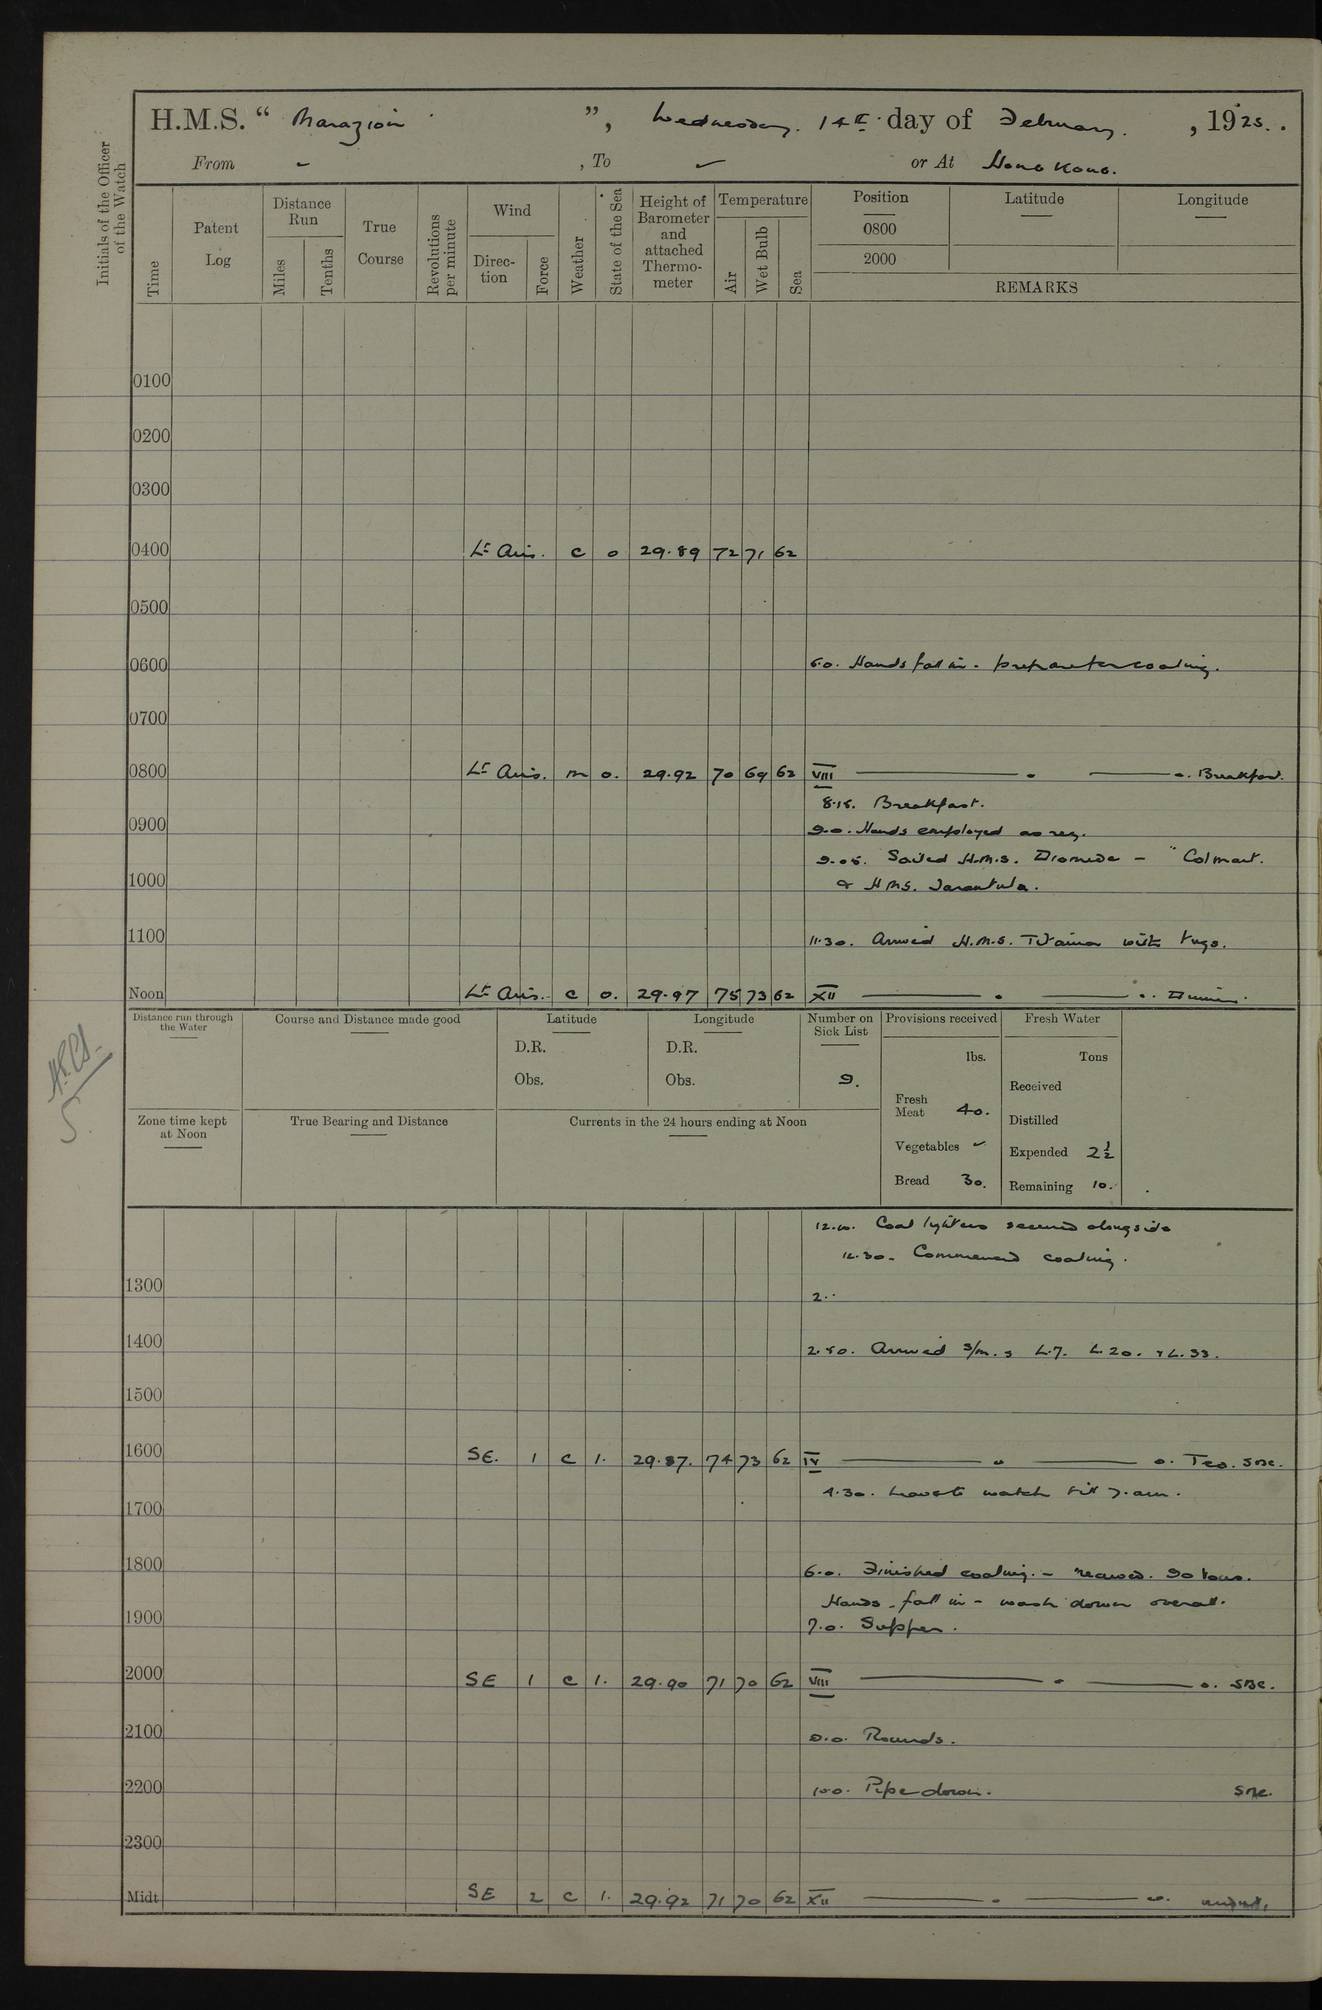 H.M.S. “ Marazion ”, Wednesday. 14th day of February. , 1925.
From - , To ✓ or At Hong Kong.
Initials of the Officer of the Watch
Time
Patent Log
Distance Run
Miles
Tenths
True Course
Revolutions per minute
Wind
Direc-tion
Force
Weather
State of the Sea
Height of Barometer and attached Thermo-meter
Temperature
Air
Wet Bulb
Sea
Position
0800
2000
Latitude
Longitude
REMARKS
0100
0200
0300
0400 Lt Airs. c o 29.89 72 71 62
0500
0600 6.0. Hands fall in - prepare for coaling.
0700
0800 Lt Airs. m o. 29.92 70 69 62 VIII o. Breakfast.
8.15. Breakfast.
0900 9.0. Hands employed as req.
9.05. Sailed H.M.S. Diomede - "Colmart.
1000 & HMS. Tarantula.
1100 11.30. Arrived H.M.S. Titania with tugs.
Noon Lt Airs. c o. 29.97 75 73 62 XII Dinner.
Distance run through the Water
Course and Distance made good
Latitude
D.R.
Obs.
Longitude
D.R.
Obs.
Number on Sick List
9.
Provisions received
lbs.
Fresh Meat 40.
Vegetables ✓
Bread 30.
Fresh Water
Tons
Received
Distilled
Expended 2½
Remaining 10.
Zone time kept at Noon
True Bearing and Distance
Currents in the 24 hours ending at Noon
5.
Coal lighters secured alongside
12.30. Commenced coaling.
1300
2..
1400 2.50. Arrived S/M.s L.7. L.20. & L.33.
1500
1600 SE. 1 c 1. 29.87. 74 73 62 IV o. Tea. SBC.
4.30. Leave to watch till 7.am.
1700
1800 6.0. Finished coaling. - received. 90 tons.
Hands fall in - wash down overall.
1900 7.0. Supper.
2000 SE 1 c 1. 29.90 71 70 62 VIII o. SBC.
2100 9.0. Rounds.
2200 10.0. Pipe down. SBC.
2300
Midt SE 2 c 1. 29.92 71 70 62 XII